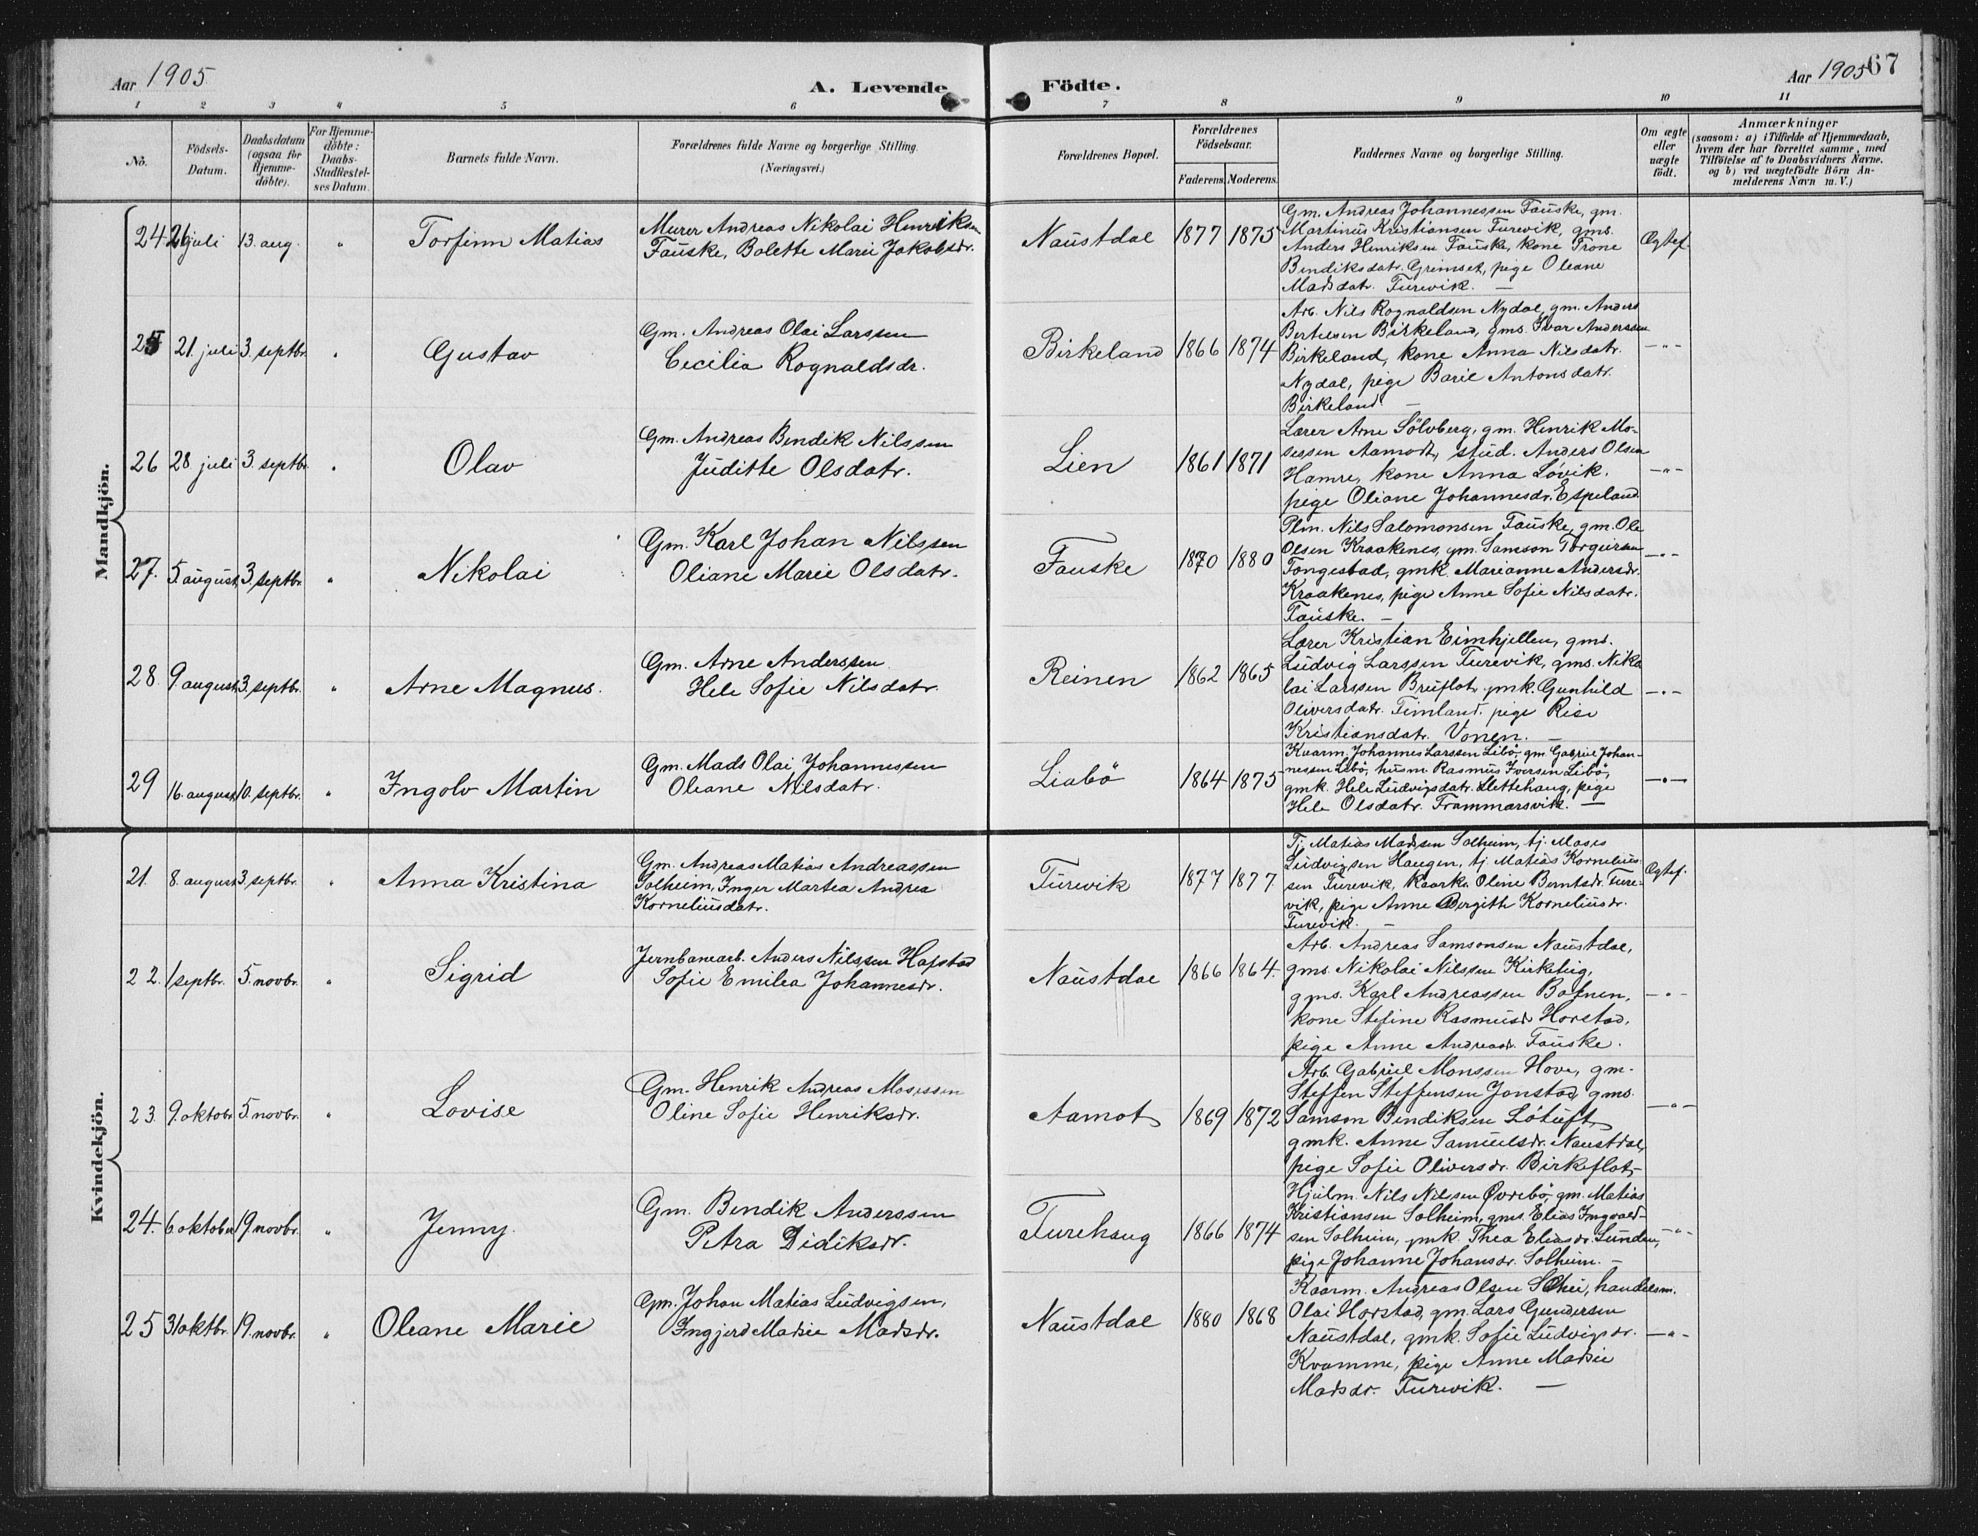 Aar 1905
A. Levende Födte.
Aar 1905 67
1 2 3 4 5 6 7 8 9 10 11
No.
Födsels-
Datum.
Daabsdatum
(ogsaa for
Hjemme-
döbte).
For Hjemme-
döbte:
Daabs-
Stadfæstel-
ses Datum.
Barnets fulde Navn.
Forældrenes fulde Navne og borgerlige Stilling.
(Næringsvei.)
Forældrenes Bopæl.
Forældrenes
Födselsaar.
Faderens. Moderens.
Faddernes Navne og borgerlige Stilling.
Om ægte
eller
uægte
födt.
Anmærkninger
(saasom: a) i Tilfælde af Hjemmedaab,
hvem der har forrettet samme, med
Tilföielse af to Daabsvidners Navne.
og b) ved uægtefödte Börn An-
melderens Navn m. V.)
Mandkjön.
24 26 juli 13. aug. " Torfinn Matias
Murer Andreas Nikolai Henriksen
Fauske, Bolette Marie Jakobsdr.
Naustdal 1877 1875
Gm. Andreas Johannessen Fauske, gm.
Martinus Kristiansen Furevik, gms.
Anders Henriksen Fauske, kone Trone
Bendiksdatr. Grimset, pige Oleane
Madsdatr. Furevik. —
Ægtef.
25 21. juli 3. septbr. " Gustav
Gm. Andreas Olai Larssen
Cecilia Rognaldsdr.
Birkeland 1866 1874
Arb. Nils Rognaldsen Nydal, gm. Anders
Bertelsen Birkeland, gms. Ivar Anderssen
Birkeland, kone Anna Nilsdatr.
Nydal, pige Barie Antonsdatr.
Birkeland. —
—"—
26 28. juli 3. septbr. " Olav
Gm. Andreas Bendik Nilssen
Juditte Olsdatr.
Lien 1861 1871
Lærer Arne Sölvberg, gm. Henrik Mo-
sessen Aamodt, stud. Anders Olsen
Hamre, kone Anna Løvik.
pige Oliane Johannesdr. Espeland
—"—
27. 5 august 3. septbr. " Nikolai
Gm. Karl Johan Nilssen
Oliane Marie Olsdatr.
Fauske 1870 1880
Plm. Nils Salomonsen Fauske, gm. Ole
Olsen Kraakenes, ym. Samson Torgeirsen
Tongestad, gmk. Marianne Andersdr.
Kraakenes, pige Anne Sofie Nilsdatr.
Fauske. —
—"—
28. 9 august 3. septbr. " Arne Magnus.
Gm. Arne Anderssen
Hele Sofie Nilsdatr.
Reinen 1862 1865
Lærer Kristian Eimhjellen, gms.
Ludvig Larssen Furevik, gms. Niko
lai Larssen Bruflot, gmk. Gunhild
Oliversdatr. Fimland. pige Rise
Kristiansdatr. Vonen. —
—"—
29 16. august 10. septbr. " Ingolv Martin
Gm. Mads Olai Johannessen
Oleane Nilsdatr.
Liabö 1864 1875
Kaarm. Johannes Larssen Libö, gm. Gabriel Johan-
nessen Libö, husm. Rasmus Iversen Libö,
gmk. Hele Ludvigsdatr. Slettehaug, pige
Hele Olsdatr. Frammarsvik. —
—"—
Kvindekjön.
21. 8. august 3. septbr. " Anna Kristina
Gm. Andreas Matias Andreassen
Solheim, Inger Martea Andrea
Korneliusdatr.
Furevik 1877 1877.
Tj. Matias Madssen Solheim, tj. Moses
Ludvigsen Haugen, tj. Matias Kornelius-
sen Furevik, Kaark. Oline Berntsdr. Fure-
vik, pige Anne Bergitte Korneliusdr.
Furevik. —
Ægtef.
22. 1 septbr. 5. novbr. " Sigrid
Jernbanearb. Anders Nilssen Hafstad
Sofie Emilea Johannesdr.
Naustdal 1866 1864.
Arb. Andreas Samsonsen Naustdal,
gms. Nikolai Nilssen Kirketeig,
gms. Karl Andreassen Botnen,
kone Stefine Rasmusdr Horstad,
pige Anne Andreasdr. Fauske.
—"—
23. 9. oktobr. 5. novbr. " Lovise
Gm. Henrik Andreas Mosessen
Oline Sofie Henriksdr.
Aamot 1869 1872
Arb. Gabriel Monssen Hove, gm.
Steffen Steffensen Jonstad, gms.
Samson Bendiksen Løtuft,
gmk. Anne Samuelsdr. Naustdal,
pige Sofie Oliversdr. Birkeflot. —
—"—
24. 6 oktober 19. novbr. " Jenny.
Gm. Bendik Anderssen
Petra Didiksdr.
Furehaug 1866 1874
Hjulm. Nils Nilssen Øvrebö, gm. Matias
Kristiansen Solheim, gms. Elias Ingvald-
sen Solheim, gmk. Thea Eliasdr. Lunden,
pige Johanne Johansdr. Solheim. —
—"—
25 31 oktbr. 19. novbr. " Oleane Marie
Gm. Johan Matias Ludvigsen,
Ingjerd Marie Madsdr.
Naustdal 1880 1868
Kaarm. Andreas Olsen Schei, handelsm.
Olai Horstad, gm. Lars Gundersen
Naustdal, gmk. Sofie Ludvigsdr.
Kvamme, pige Anne Marie
Madsdr. Furevik. —
—"—